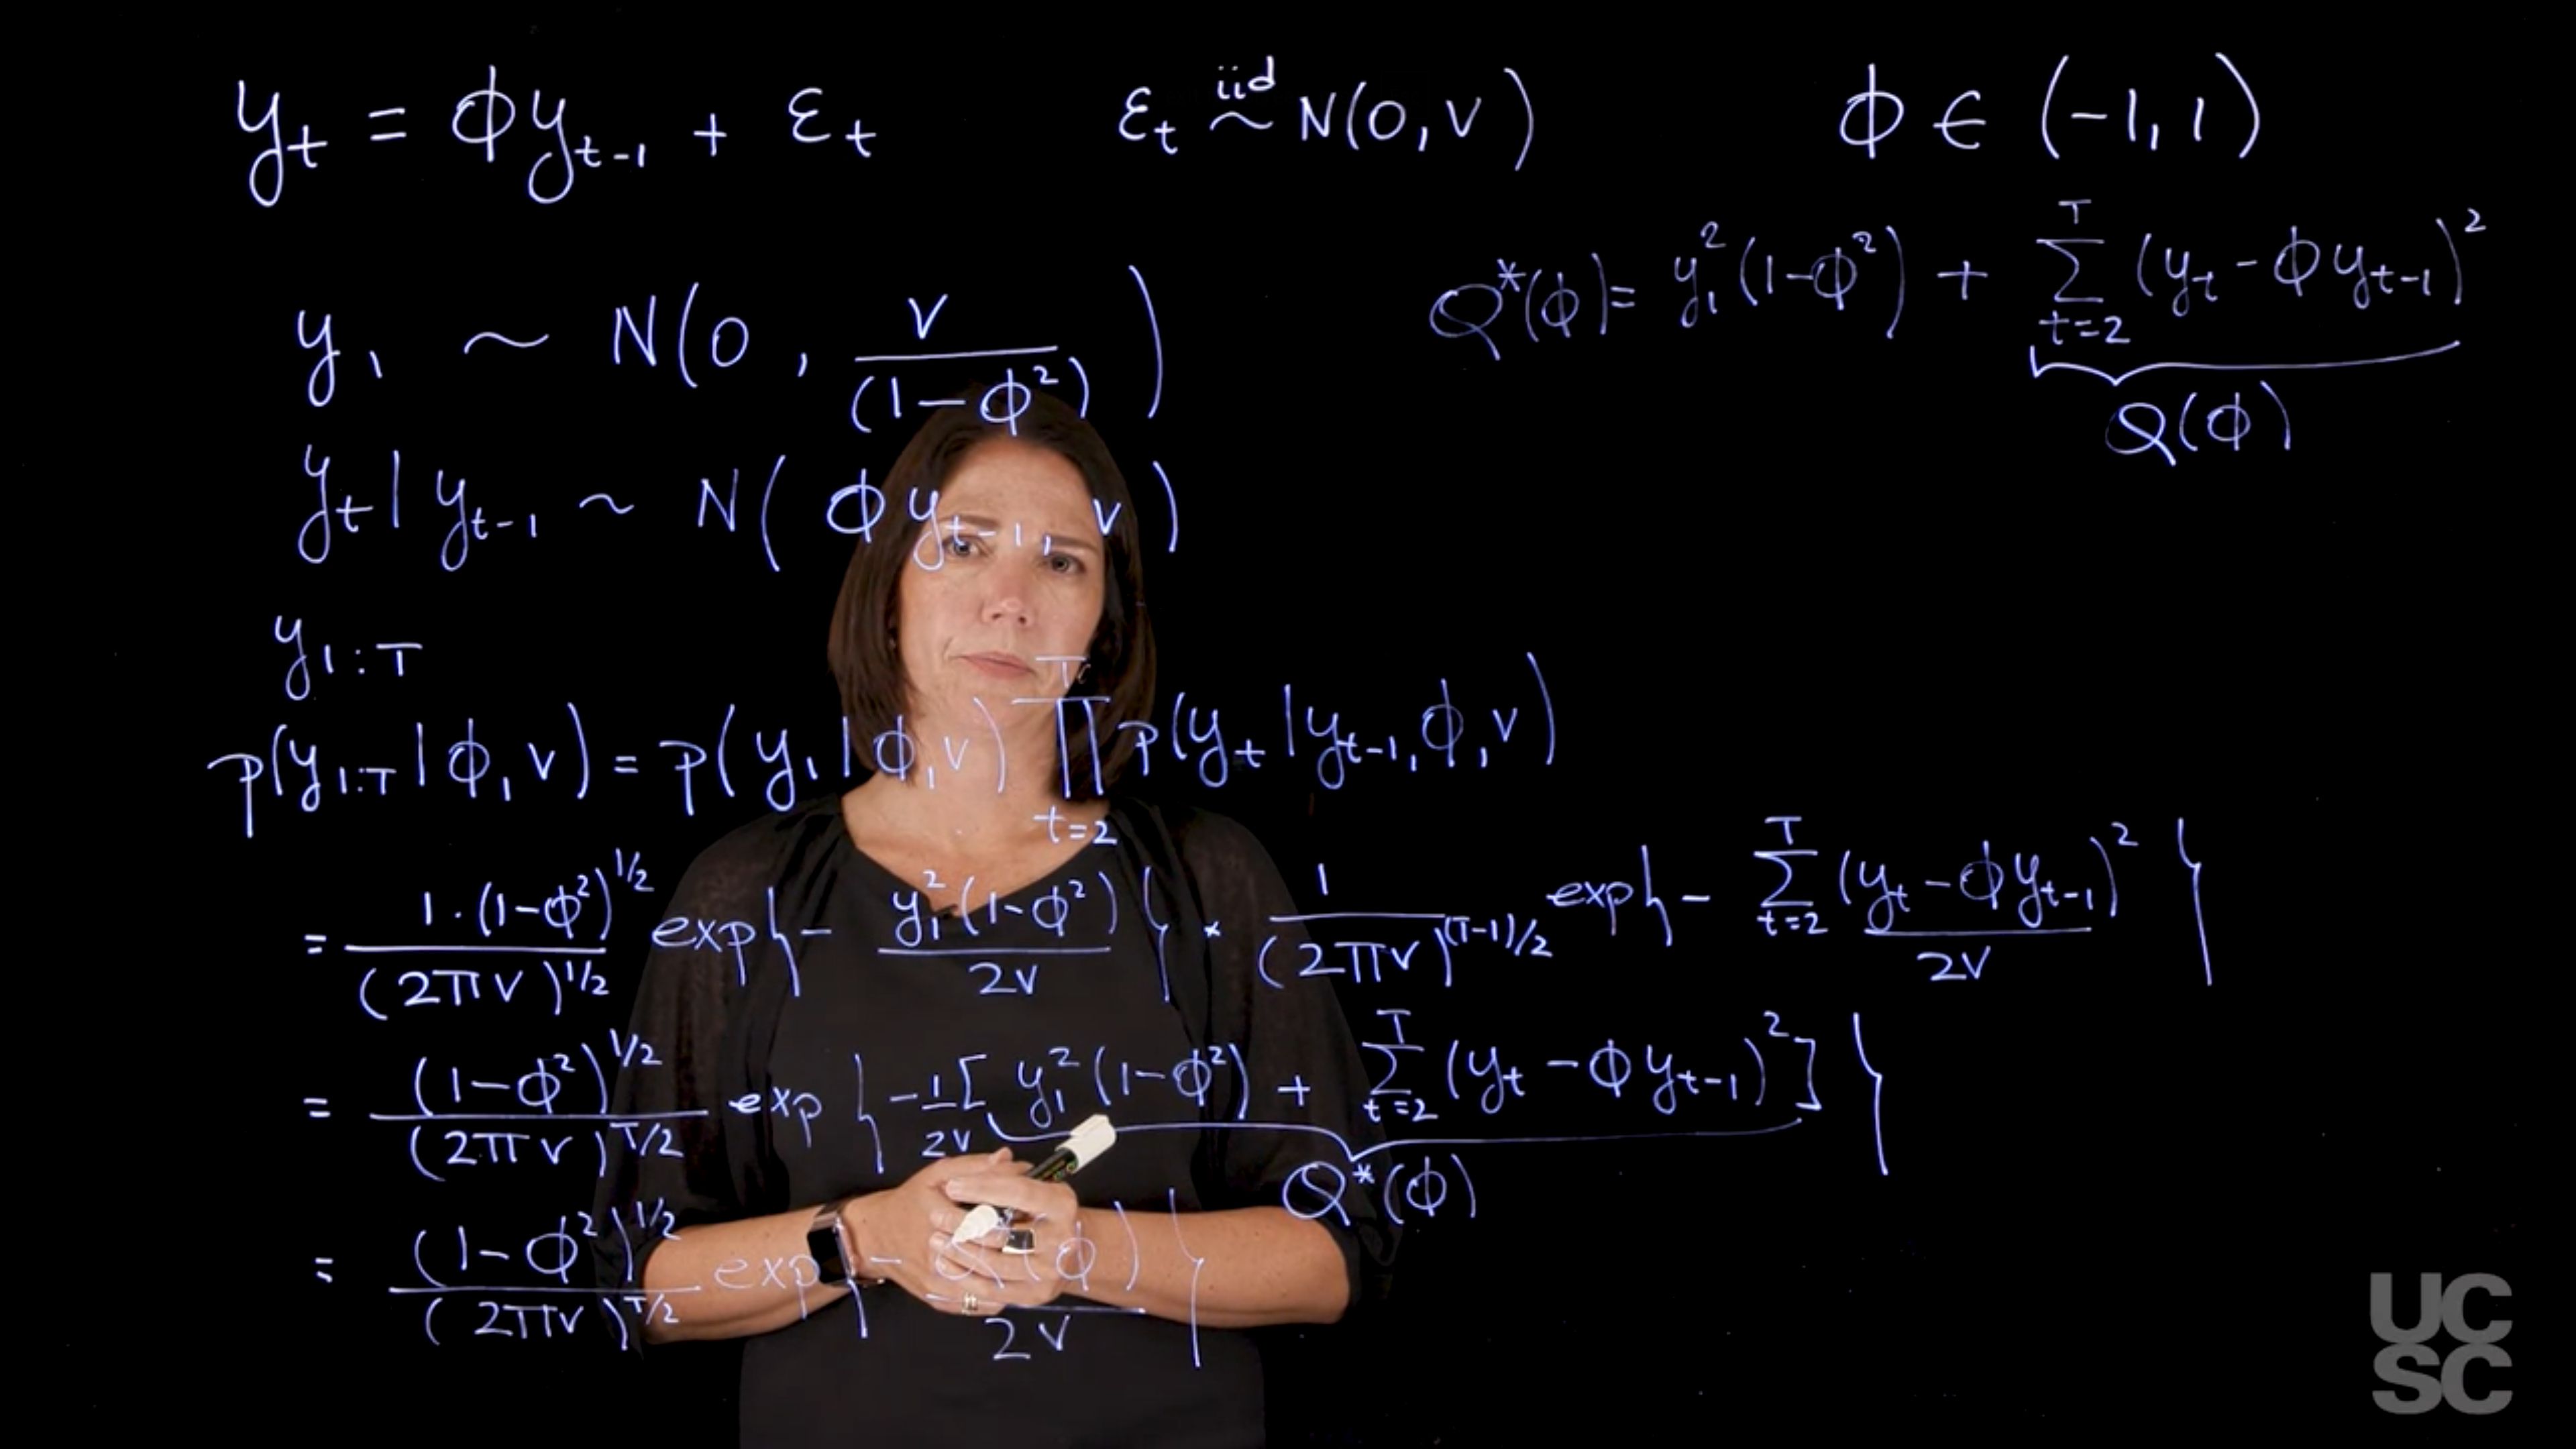 y_t = ϕy_{t-1} + ε_t    ε_t ~^{iid} N(0, v)    ϕ ∈ (-1, 1)
Q*(ϕ) = y_1^2 (1-ϕ^2) + ∑_{t=2}^{T} (y_t - ϕy_{t-1})^2
Q(ϕ)
y_1 ~ N(0, v/(1-ϕ^2))
y_t | y_{t-1} ~ N(ϕy_{t-1}, v)
y_{1:T}
p(y_{1:T} | ϕ, v) = p(y_1 | ϕ, v) ∏_{t=2}^{T} p(y_t | y_{t-1}, ϕ, v)
= 1·(1-ϕ^2)^{1/2} / (2πv)^{1/2} exp{- y_1^2 (1-ϕ^2) / 2v} * 1 / (2πv)^{(T-1)/2} exp{- ∑_{t=2}^{T} (y_t - ϕy_{t-1})^2 / 2v}
= (1-ϕ^2)^{1/2} / (2πv)^{T/2} exp{- 1/2v [y_1^2 (1-ϕ^2) + ∑_{t=2}^{T} (y_t - ϕy_{t-1})^2]}
Q*(ϕ)
= (1-ϕ^2)^{1/2} / (2πv)^{T/2} exp{- (ϕ) / 2v}
UC
SC